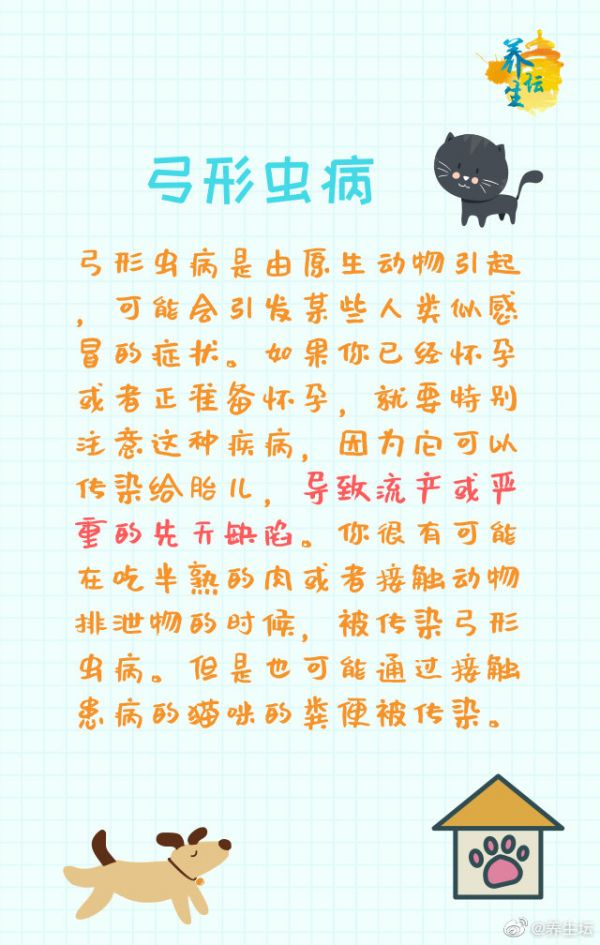 养生坛
弓形虫病
弓形虫病是由原生动物引起
，可能会引发某些人类似感
冒的症状。如果你已经怀孕
或者正准备怀孕，就要特别
注意这种疾病，因为它可以
传染给胎儿，导致流产或严
重的先天缺陷。你很有可能
在吃半熟的肉或者接触动物
排泄物的时候，被传染弓形
虫病。但是也可能通过接触
患病的猫咪的粪便被传染。
@养生坛